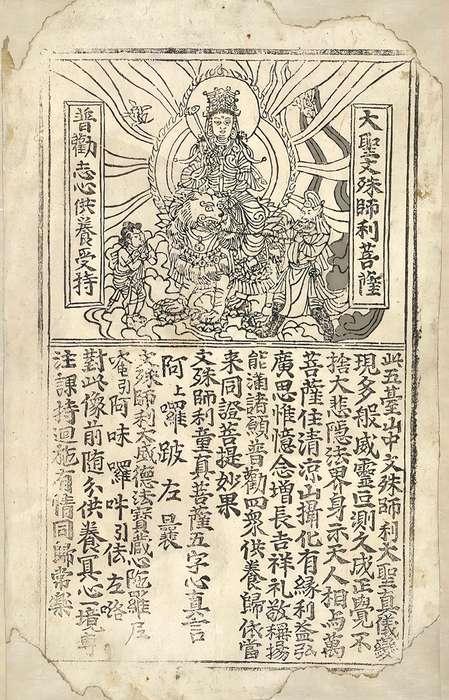 大聖文殊師利菩薩
普勸志心供養受持
此五臺山中文殊師利大聖真儀變
現多般威靈叵測久成正覺不
捨大悲隱法界身示天人相与萬
菩薩住清凉山攝化有緣利益弘
廣思惟憶念增長吉祥礼敬稱揚
能滿諸願普勸四衆供養歸依當
来同證菩提妙果
文殊師利童真菩薩五字心真言
阿上囉跛左曩
文殊師利大威德法寶藏心陁羅尼
唵引阿味囉吽引佉左路
對此像前随分供養冥心一境專
注課持迴施有情同歸常樂